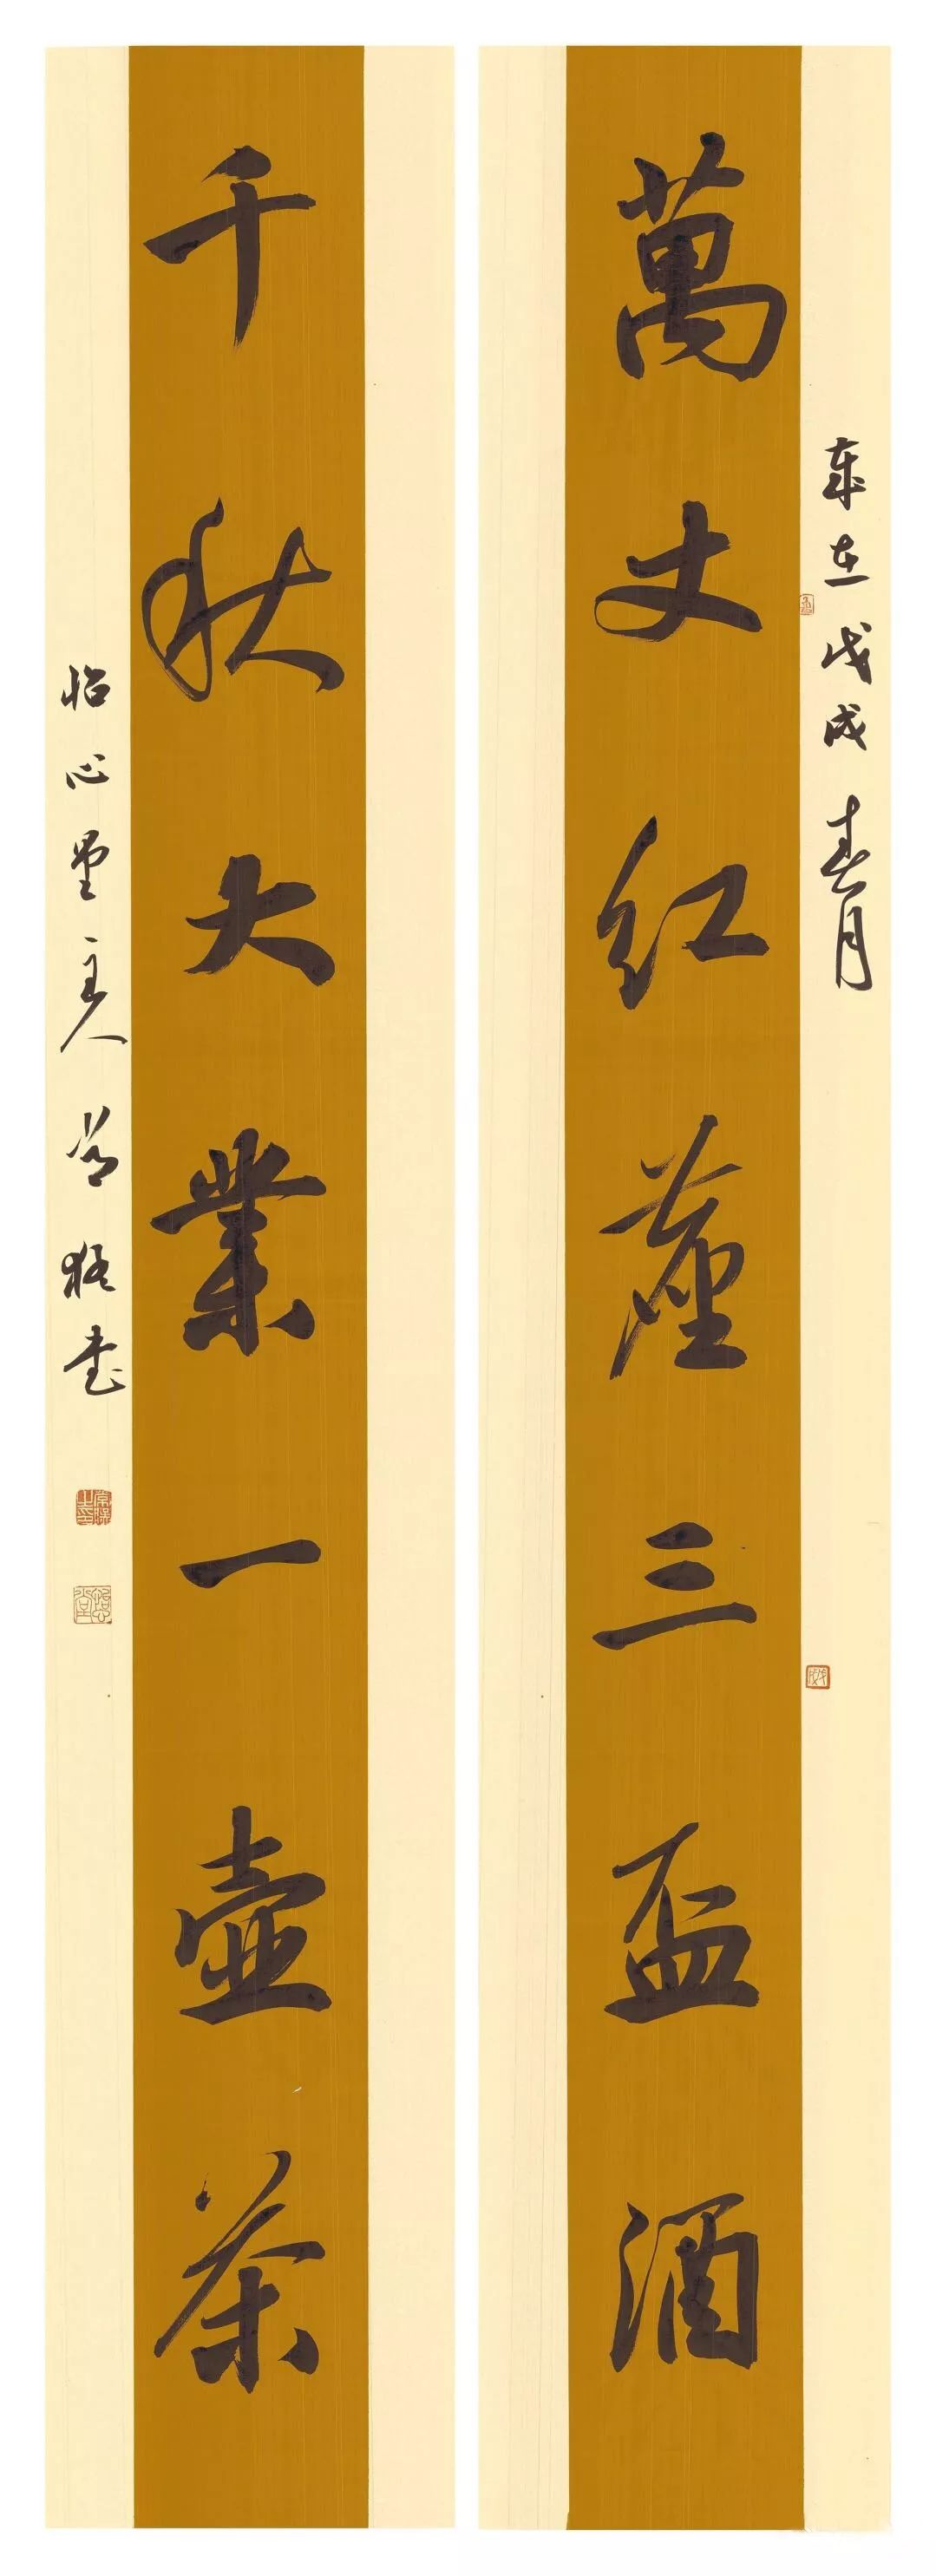 歲在戊戌春月
萬丈紅塵三盃酒
千秋大業一壺茶
怡心堂主人常雅書